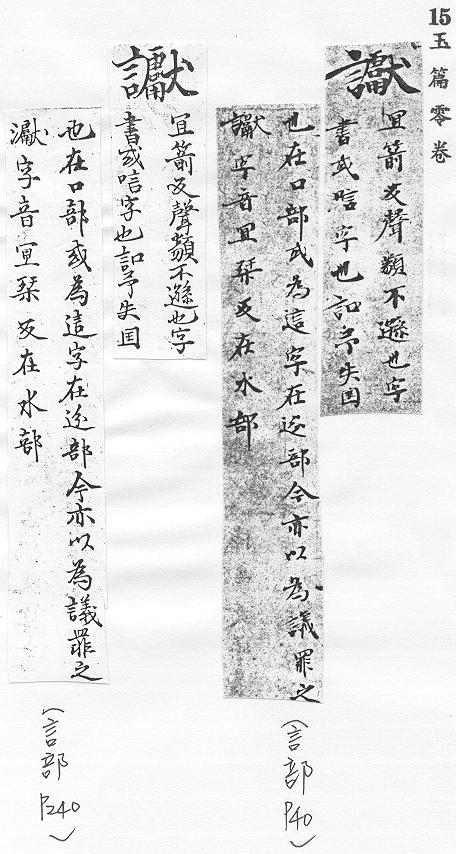 15玉篇零卷
讞
冝箭反聲類不遜也字
書或唁字也失国
也在口部或為這字在辵部今亦以為議罪之
讞字音冝琹反在水部
(言部 P40)
讞
冝箭反聲類不遜也字
書或唁字也失国
也在口部或為這字在辵部今亦以為議罪之
瀗字音冝琹反在水部
(言部 P240)